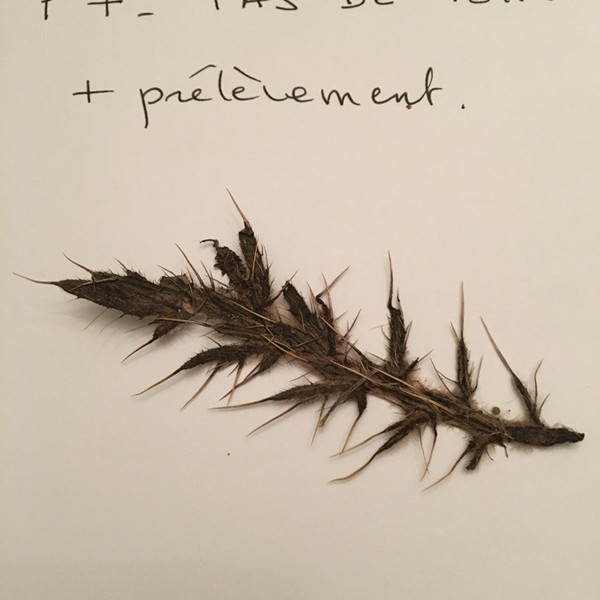 + - PAS DE
+ prélèvement.